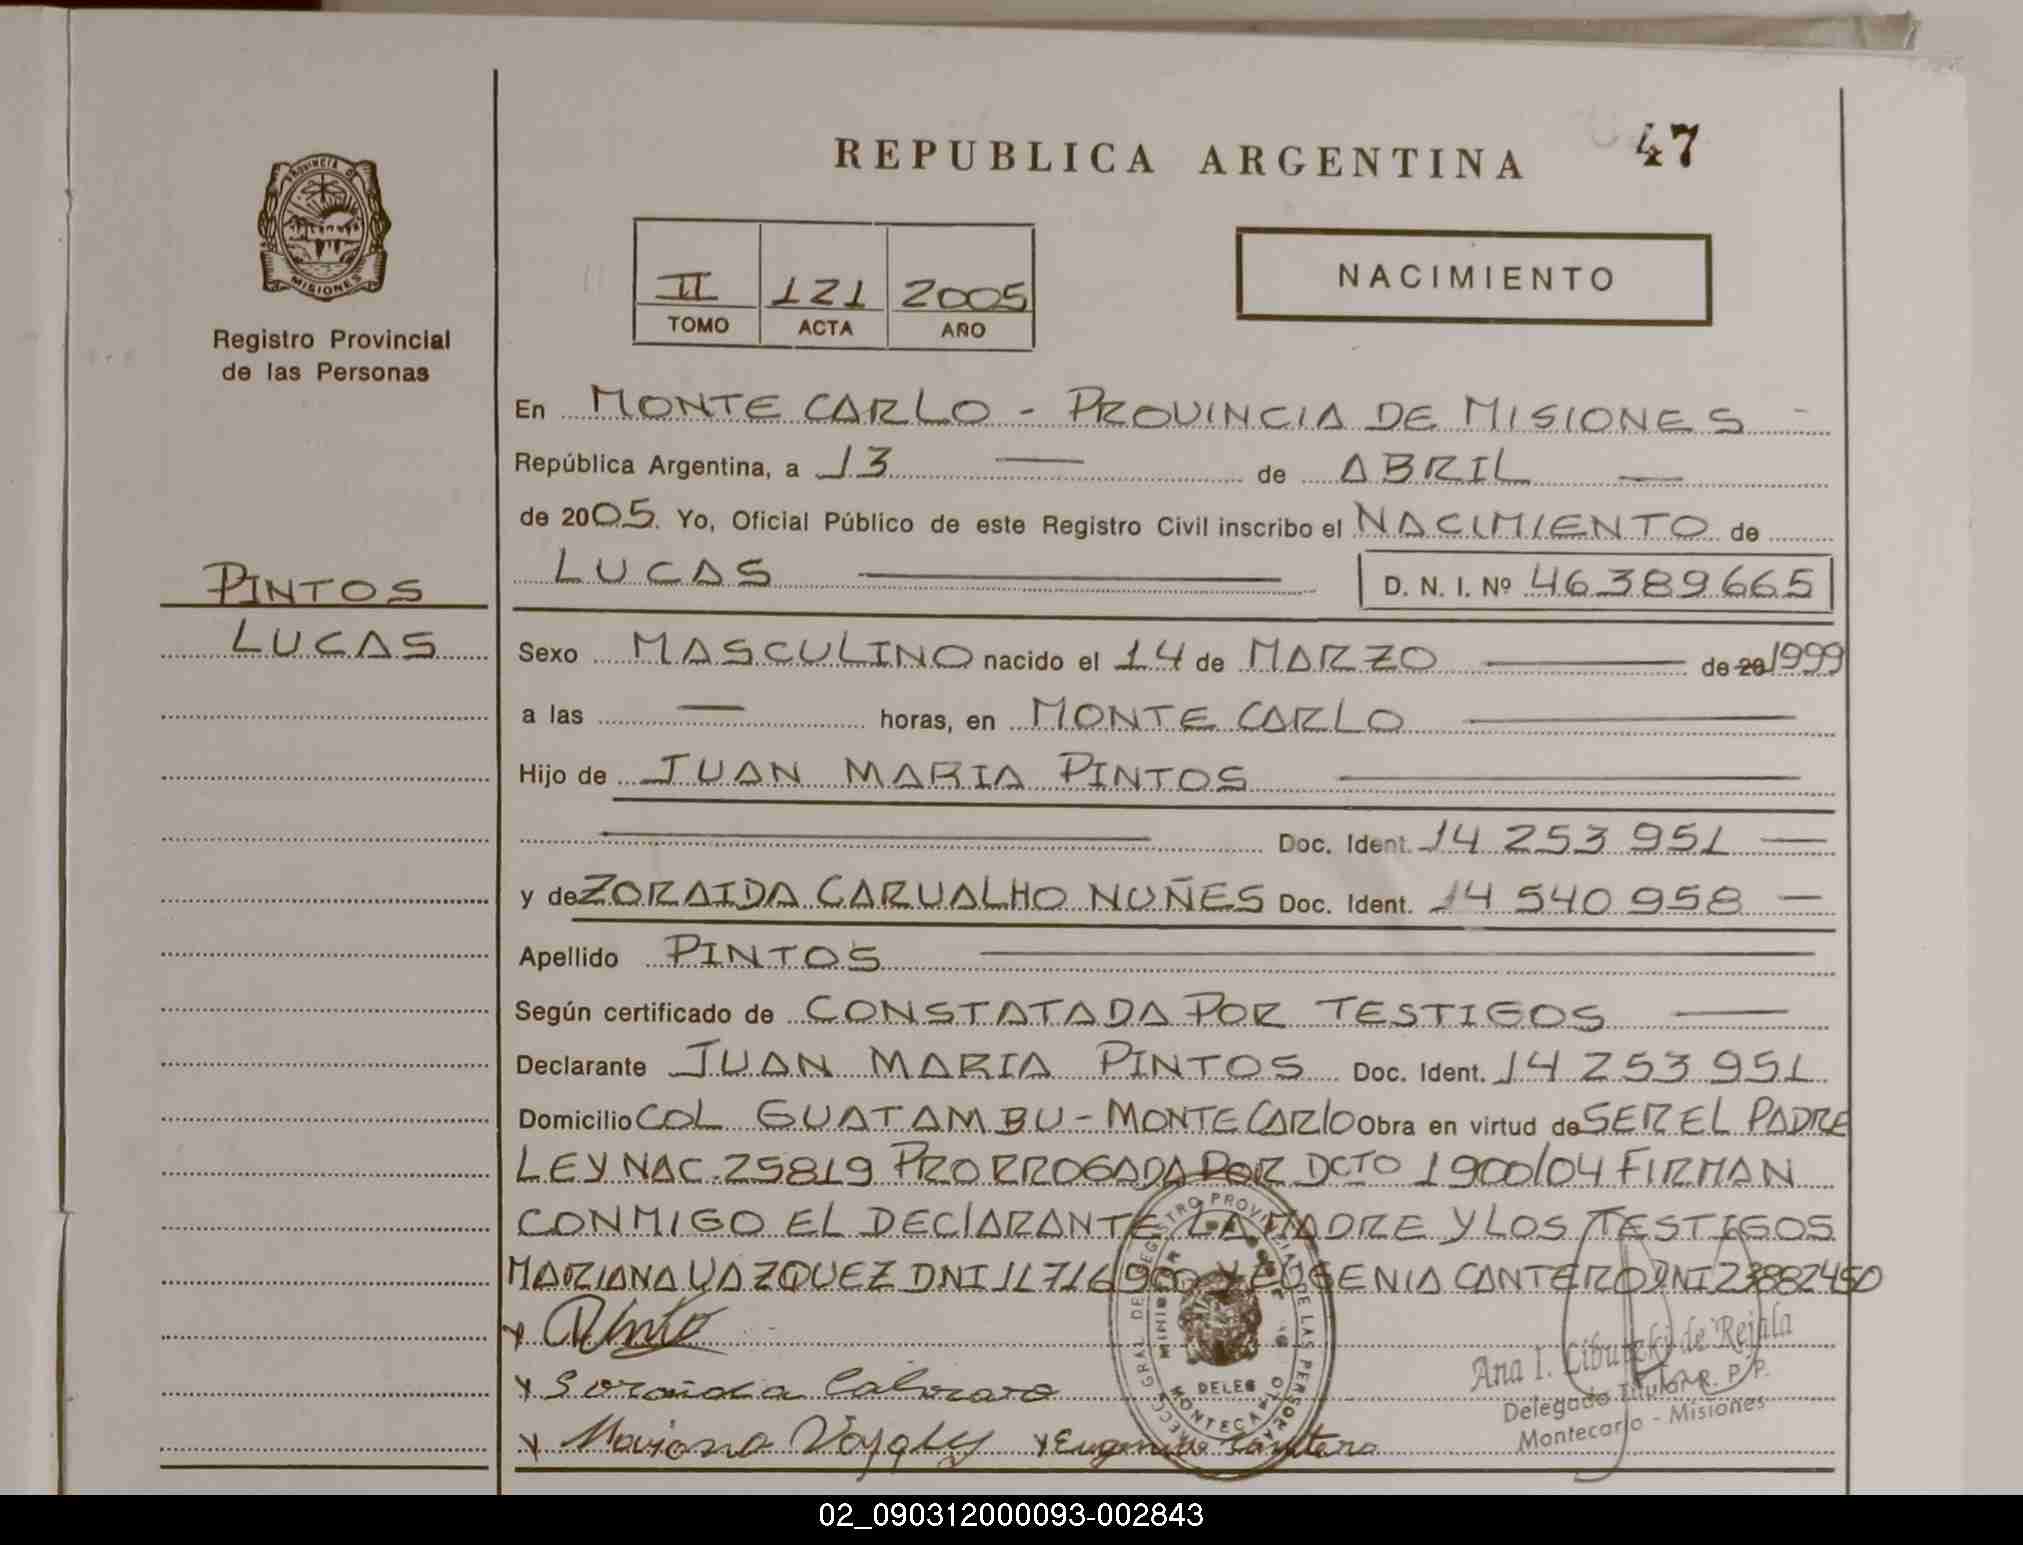 47
REPUBLICA ARGENTINA
PROVINCIA DE
MISIONES
Registro Provincial
de las Personas
NACIMIENTO
II 121 2005
TOMO ACTA AÑO
En MONTECARLO - PROVINCIA DE MISIONES -
República Argentina, a 13 — de ABRIL —
de 2005. Yo, Oficial Público de este Registro Civil inscribo el NACIMIENTO de
LUCAS — D. N. I. Nº 46.389.665
PINTOS
LUCAS
Sexo MASCULINO nacido el 14 de MARZO — de 20 1999
a las — horas, en MONTECARLO —
Hijo de JUAN MARIA PINTOS —
— Doc. Ident. 14 253 951 —
y de ZORAIDA CARVALHO NUÑES Doc. Ident. 14 540 958 —
Apellido PINTOS —
Según certificado de CONSTATADA POR TESTIGOS —
Declarante JUAN MARIA PINTOS Doc. Ident. 14 253 951
Domicilio COL GUATAMBU - MONTECARLO Obra en virtud de SER EL PADRE
LEY NAC. 25819 PRORROGADA POR DCTO 1900/04 FIRMAN
CONMIGO EL DECLARANTE LA MADRE Y LOS TESTIGOS
MARIANA VAZQUEZ DNI 11716900 Y EUGENIA CANTERO DNI 23882450
Ana I. de Rejala
Delegado Titular R. P. P.
Montecarlo - Misiones
Eugenia Cantero
02_090312000093-002843